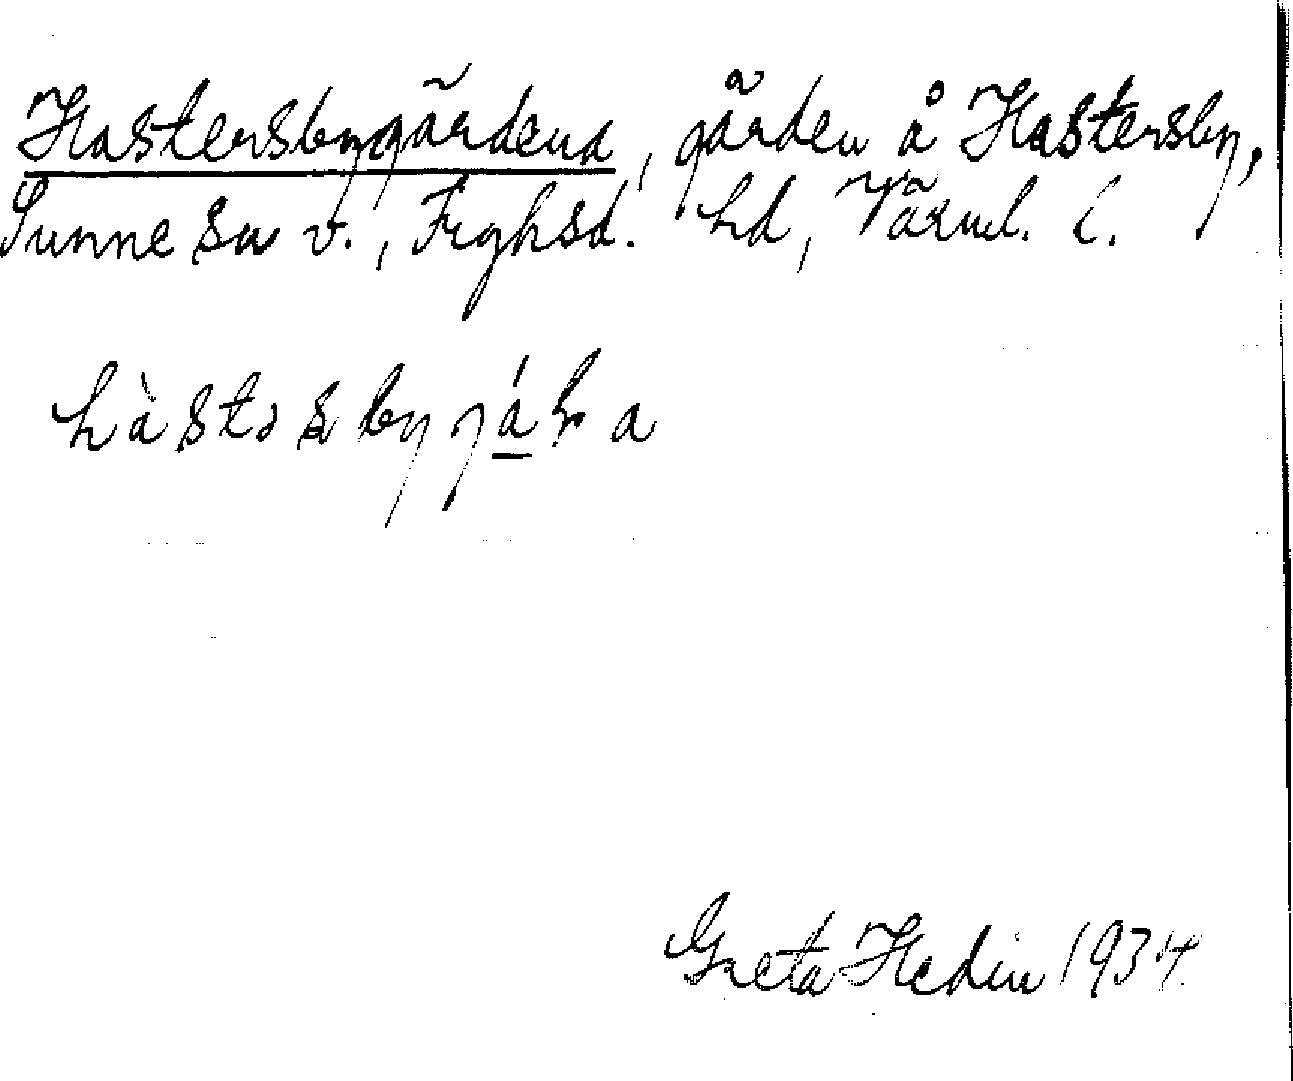 Hastersbygärdena, gärden å Hastersby,
Sunne sn v., Frykssd. hd, Värml. l.
hàstəsbyjáɽa
Greta Hedin 1934.